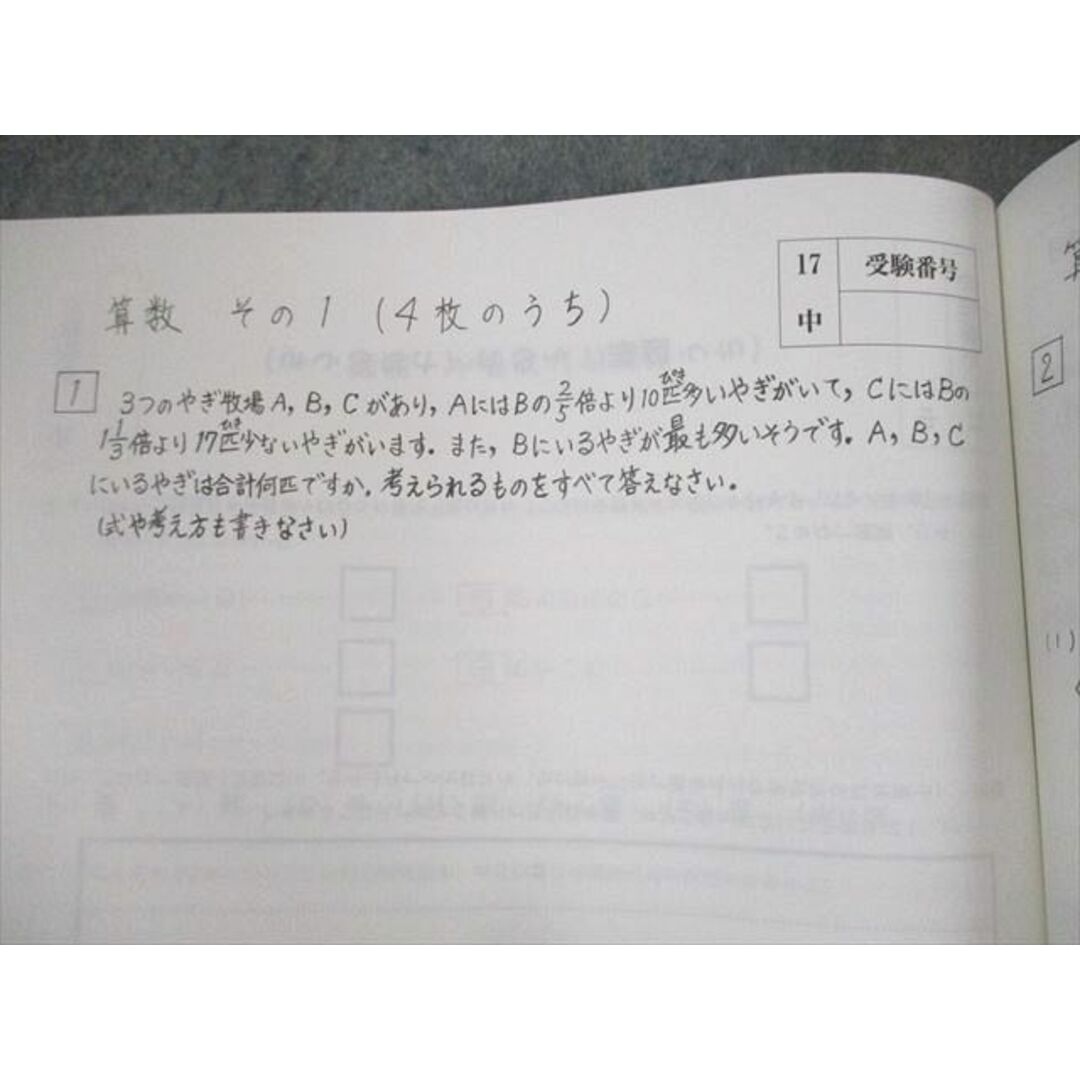 17 受験番号
中
算数 その1 (4枚のうち)
1 3つのやぎ牧場A,B,Cがあり,AにはBの2/5倍より10匹多いやぎがいて,CにはBの
1 1/3倍より17匹少ないやぎがいます。また,Bにいるやぎが最も多いそうです。A,B,C
にいるやぎは合計何匹ですか。考えられるものをすべて答えなさい。
(式や考え方も書きなさい)
算
2
(1)